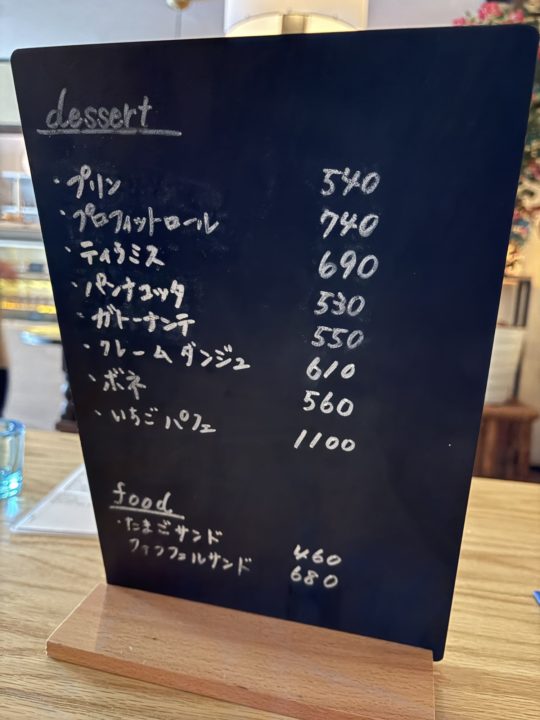 dessert
・プリン 540
・プロフィットロール 740
・ティラミス 690
・パンナコッタ 530
・ガトーナンテ 550
・クレームダンジュ 610
・ボネ 560
・いちごパフェ 1100
food
・たまごサンド 460
ファンフェルサンド 680